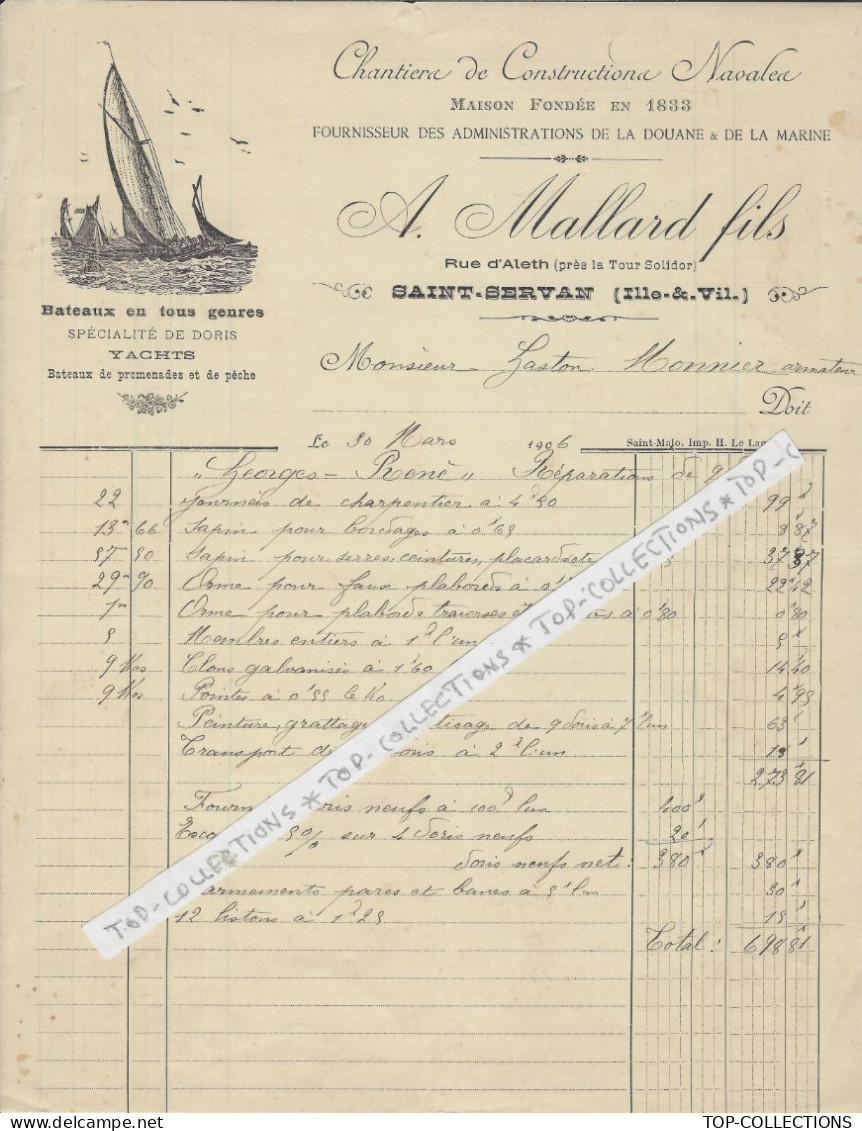 Chantiers de Constructions Navales
MAISON FONDÉE EN 1833
FOURNISSEUR DES ADMINISTRATIONS DE LA DOUANE & DE LA MARINE
A. Mallard fils
Rue d'Aleth (près la Tour Solidor)
SAINT-SERVAN (Ille-&-Vil.)
Bateaux en tous genres
SPÉCIALITÉ DE DORIS
YACHTS
Bateaux de promenades et de pêche
Monsieur Gaston Monnier armateur
Doit
Le 30 Mars 1906
Saint-Malo, Imp. H. Le
"Georges-René" Réparations de 9
22 journées de charpentier à 4f50 99f
13m 66 Sapin pour bordages à 0f65 8 87
57m 50 Sapin pour serres, ceintures, placards 37 37
29m 90 Orme pour faux plabords à 22 42
1m Orme pour plabords traverses à 0f80 0 80
5 Membres entiers à 1f l'un 5f
9 Kos Clous galvanisés à 1f60 14 40
9 Kos Pointes à 0f55 le Ko 4 95
Peinture, grattage de 9 doris à 7f l'un 63f
Transport à 2f l'un 18f
273 81
doris neufs à 100f l'un 400f
5% sur 4 doris neufs 20f
doris neufs net: 380f 380f
armements pares et bancs à 5f l'un 30f
12 listons à 1f25 15f
Total: 698 81
TOP-COLLECTIONS * TOP-COLLECTIONS * TOP-COLLECTIONS * TOP-C
TOP-COLLECTIONS